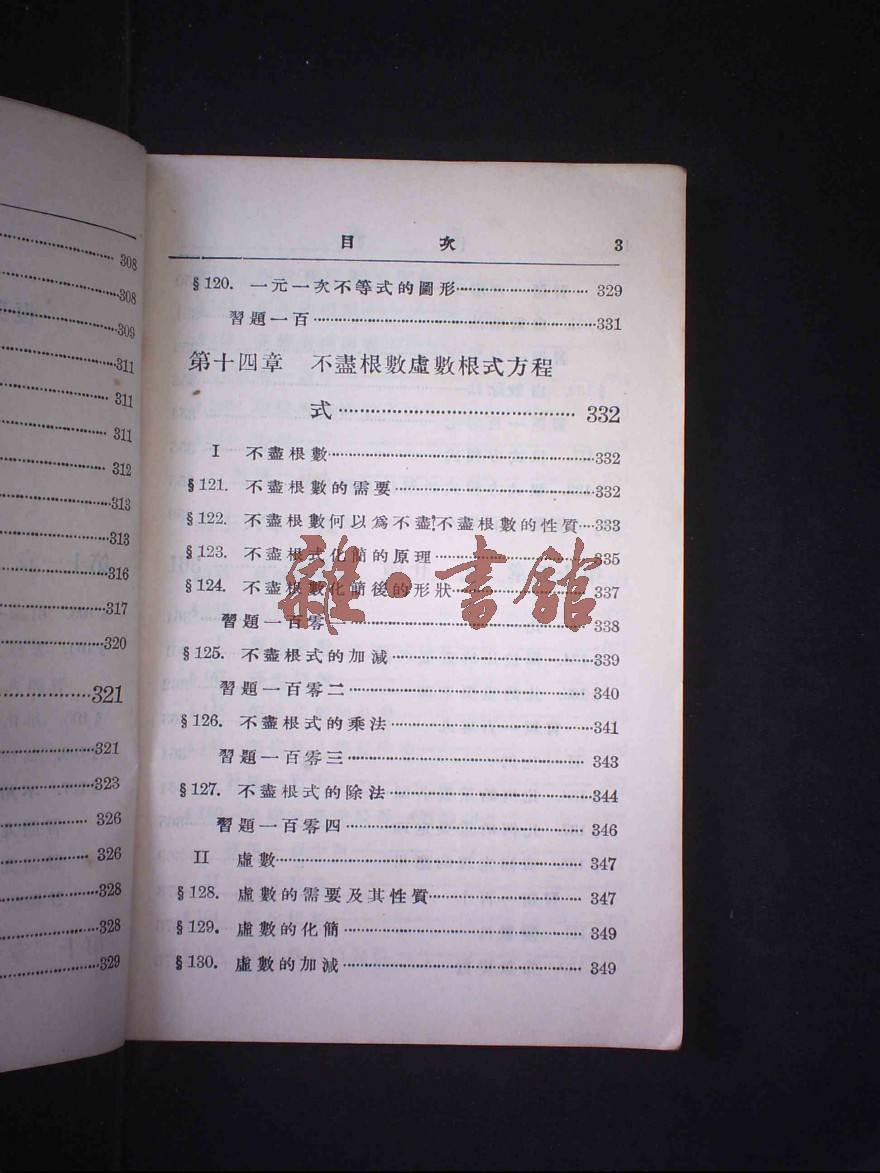 308
308
309
311
311
311
312
313
313
316
317
320
321
321
323
326
326
328
328
329
目 次 3
§120. 一元一次不等式的圖形 329
習題一百 331
第十四章 不盡根數虛數根式方程
式 332
I 不盡根數 332
§121. 不盡根數的需要 332
§122. 不盡根數何以爲不盡?不盡根數的性質 333
§123. 不盡根式化簡的原理 335
§124. 不盡根數化簡後的形狀 337
習題一百零一 338
§125. 不盡根式的加減 339
習題一百零二 340
§126. 不盡根式的乘法 341
習題一百零三 343
§127. 不盡根式的除法 344
習題一百零四 346
II 虛數 347
§128. 虛數的需要及其性質 347
§129. 虛數的化簡 349
§130. 虛數的加減 349
雜·書館